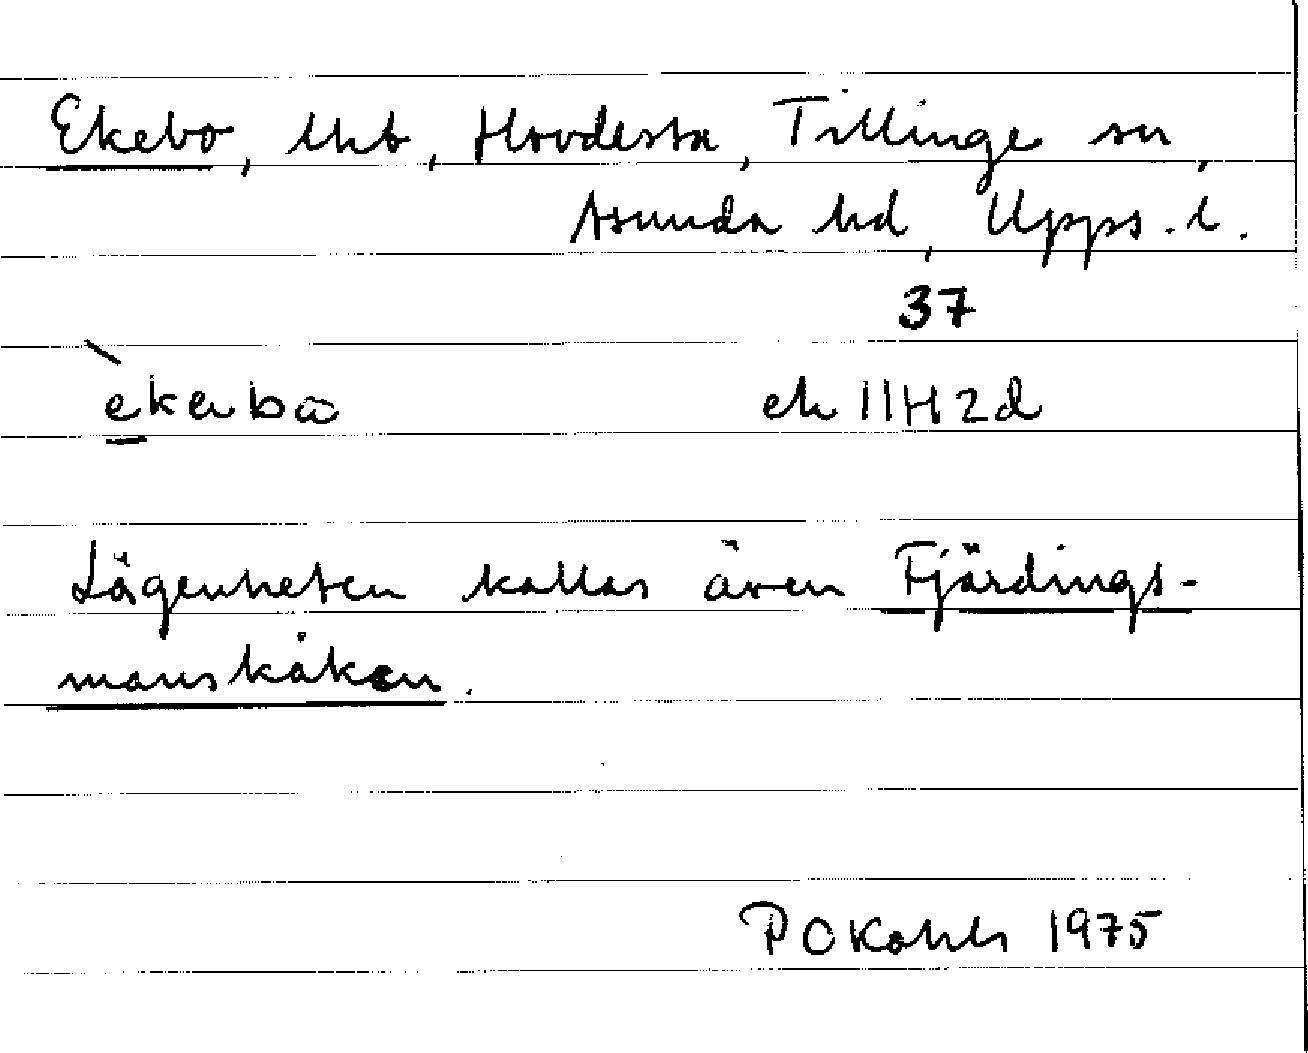 Ekebo, lht, Hovdesta, Tillinge sn,
Åsunda hd, Upps. l.
37
èkebω
ek 11H2d
Lägenheten kallas även Fjärdings-
manskåken.
P O Kahls 1975